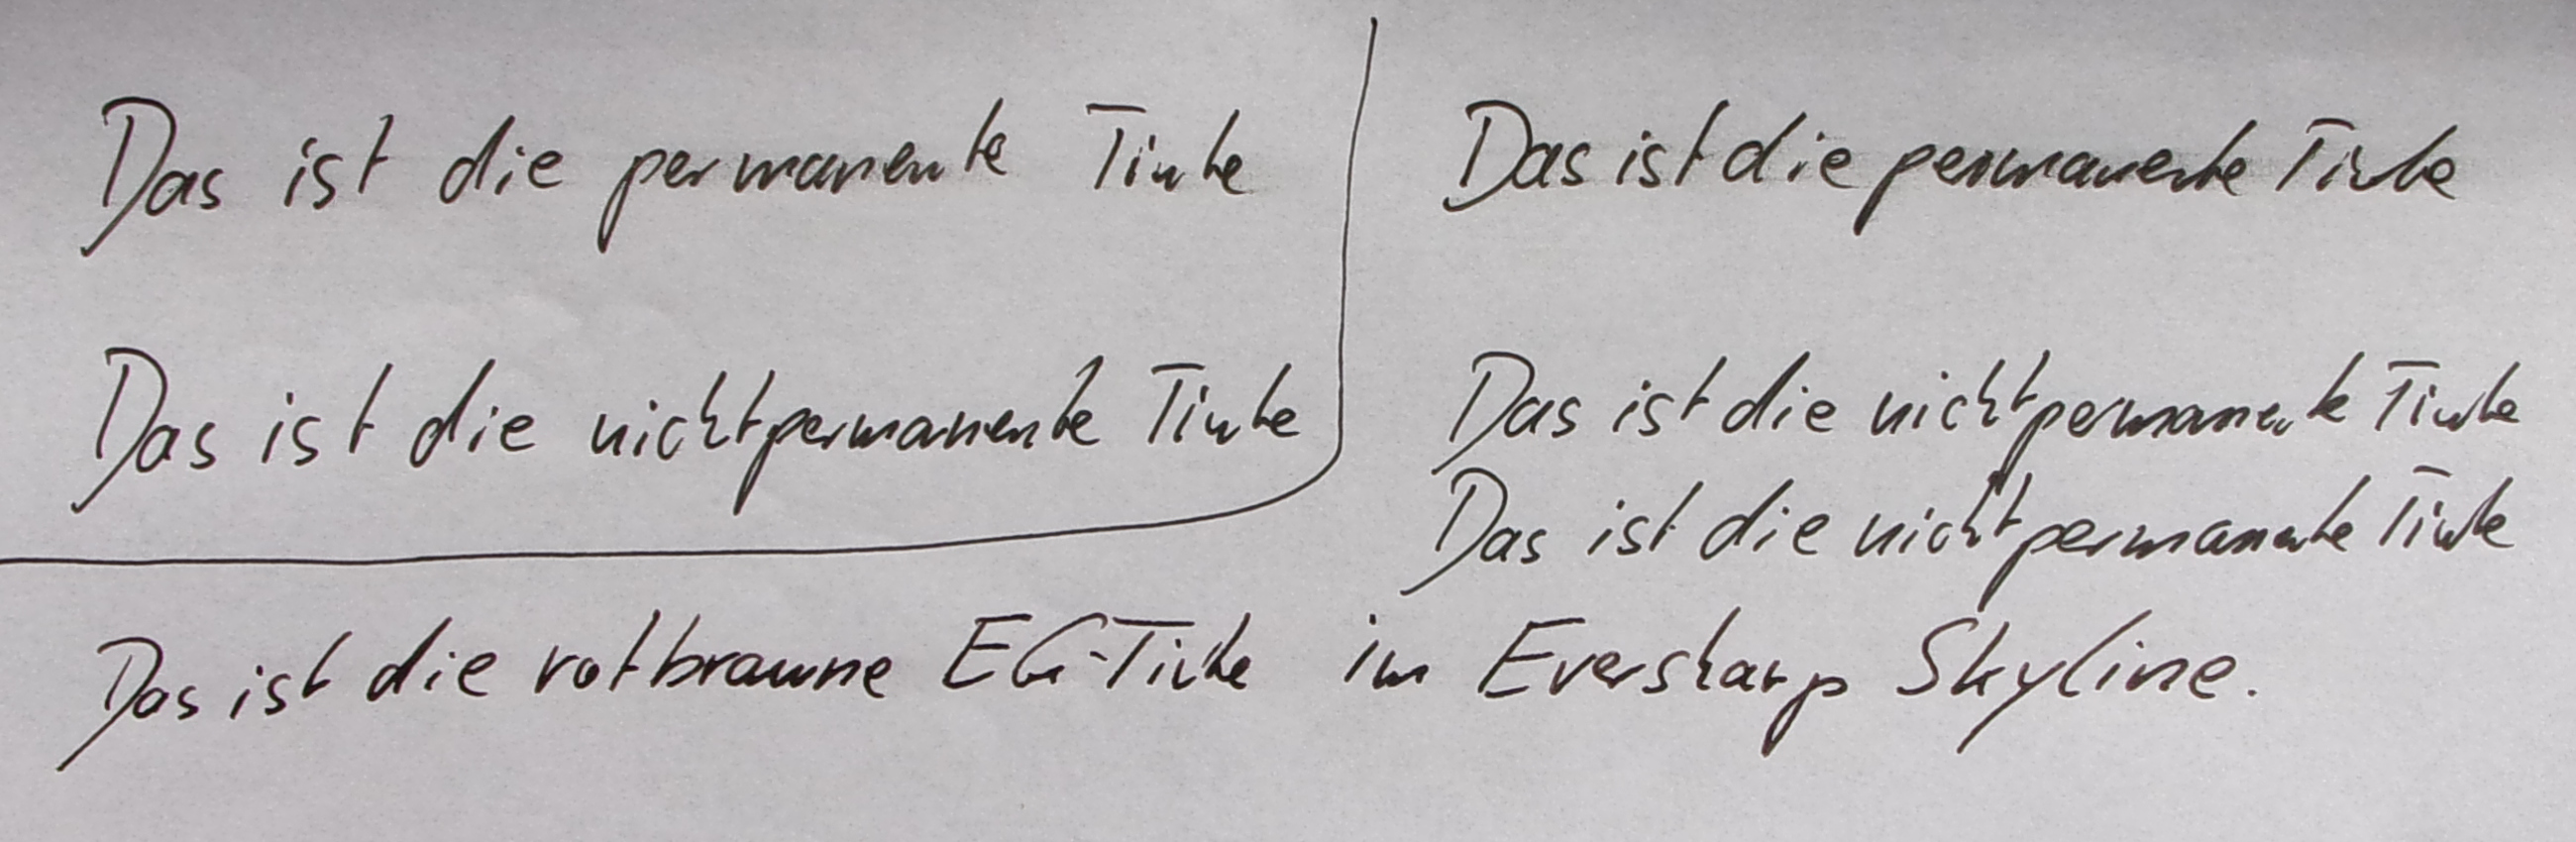 Das ist die permanente Tinte
Das ist die nichtpermanente Tinte
Das ist die permanente Tinte
Das ist die nichtpermanente Tinte
Das ist die nichtpermanente Tinte
Das ist die rotbraune EG-Tinte im Eversharp Skyline.